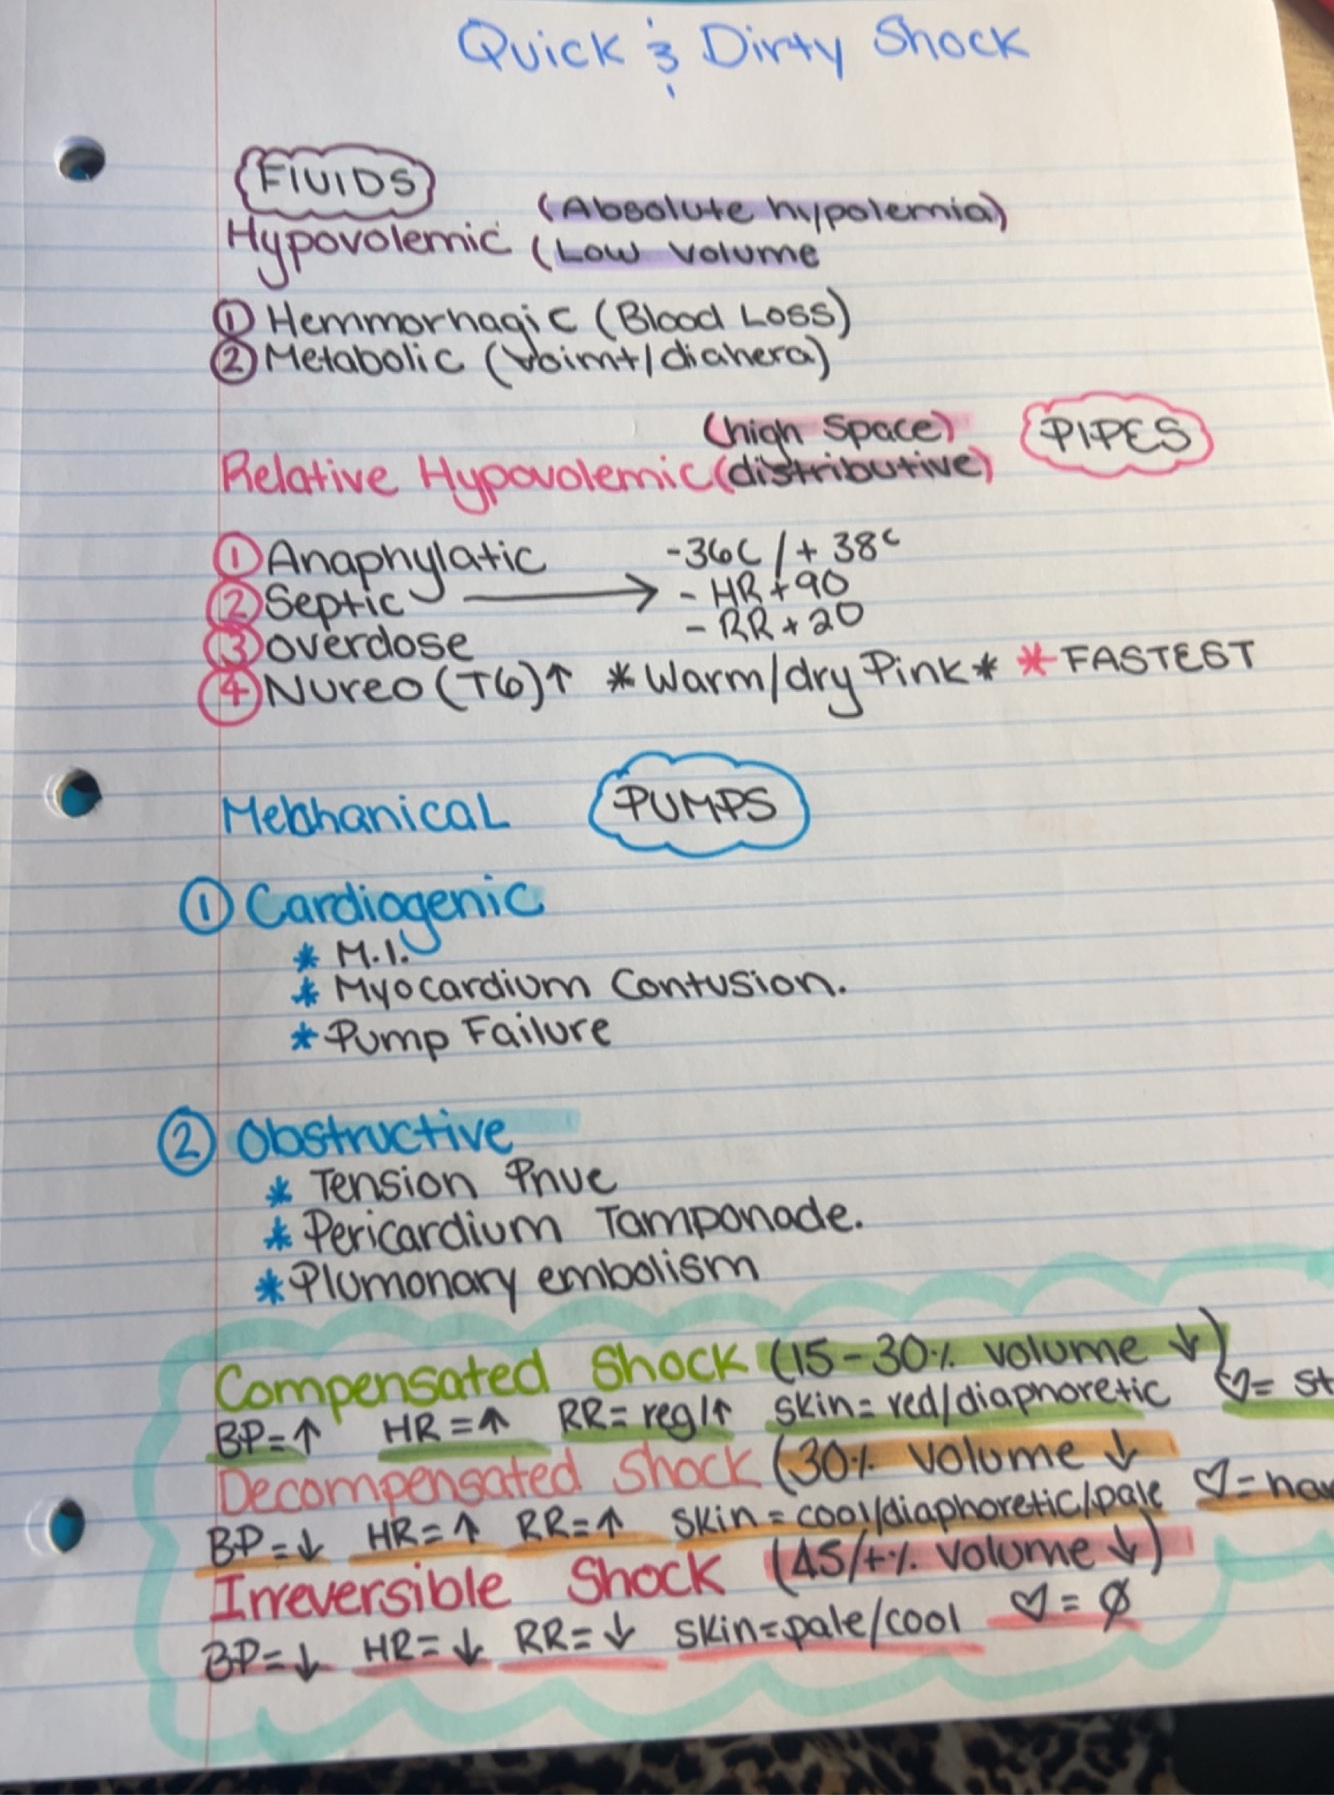 Quick & Dirty Shock
FIUIDS
(Absolute hypolemia)
Hypovolemic (Low volume
① Hemmorhagic (Blood Loss)
② Metabolic (Voimt/diahera)
(high Space) PIPES
Relative Hypovolemic (distributive)
① Anaphylatic -36C / + 38c
② Septic → - HR + 90
③ overdose - RR + 20
④ Nureo (T6)↑ *Warm/dry Pink* * FASTEST
Mechanical PUMPS
① Cardiogenic
* M.I.
* Myocardium Contusion.
* Pump Failure
② Obstructive
* Tension Pnue
* Pericardium Tamponade.
* Plumonary embolism
Compensated Shock (15-30% volume ↓)
BP=↑ HR=↑ RR= reg/↑ skin= red/diaphoretic ♡= st
Decompensated Shock (30% volume ↓
BP=↓ HR=↑ RR=↑ skin = cool/diaphoretic/pale ♡=
Irreversible Shock (45/+% volume ↓)
BP=↓ HR=↓ RR=↓ skin=pale/cool ♡= ∅